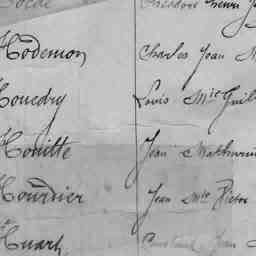 Théodore Henri
Hodemon Charles Jean M
Houedry Louis Mie Guil
Houitte Jean Mathurin
Hourdier Jean Mie Victor
Huart Jean